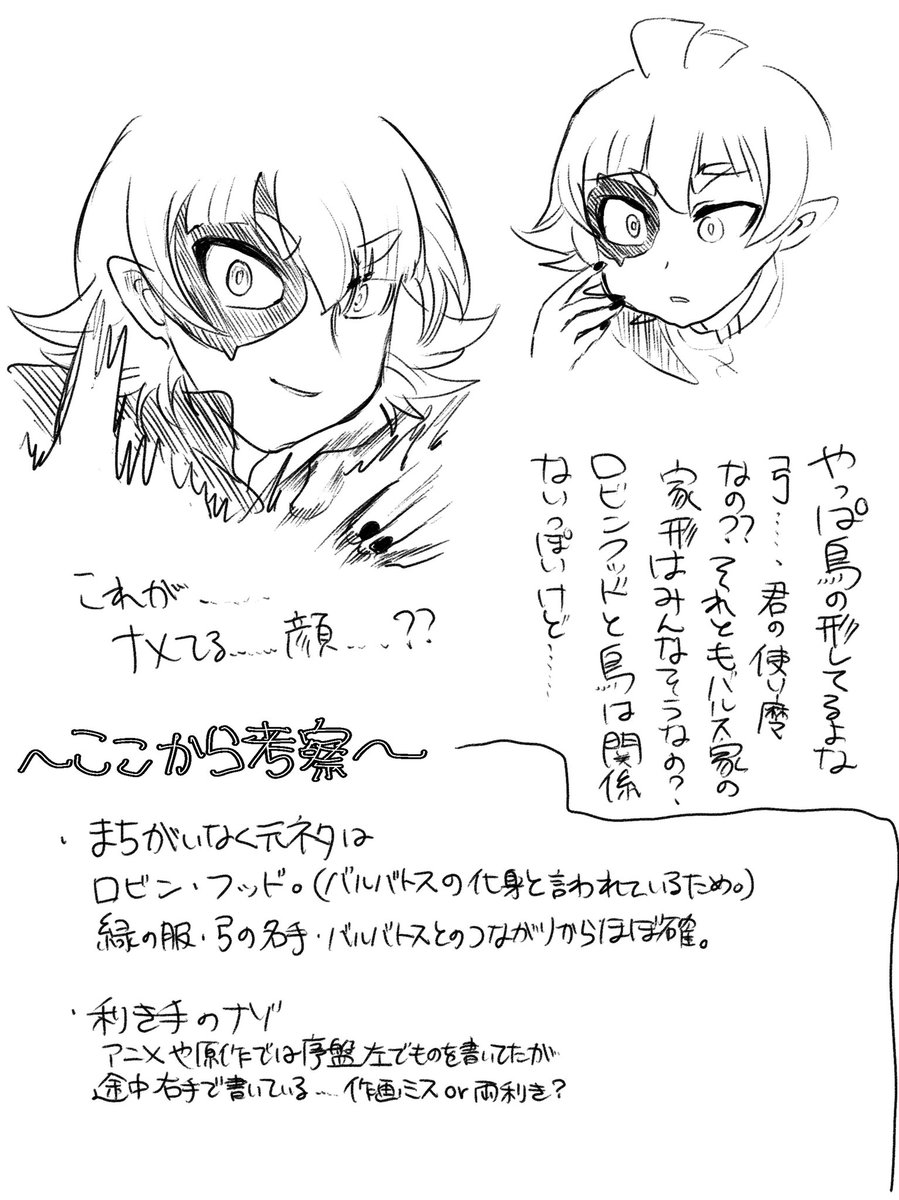 やっぱ鳥の形してるよな
弓……君の使い魔
なの??それともバルス家の
家形はみんなそうなの?
ロビンフッドと鳥は関係
ないっぽいけど……
これが……
ナメてる……顔……??
～ここから考察～
・まちがいなく元ネタは
ロビン・フッド。(バルバトスの化身と言われているため。)
緑の服・弓の名手・バルバトスとのつながりからほぼ確。
・利き手のナゾ
アニメや原作では序盤左でものを書いてたが
途中右手で書いている……作画ミスor両利き?